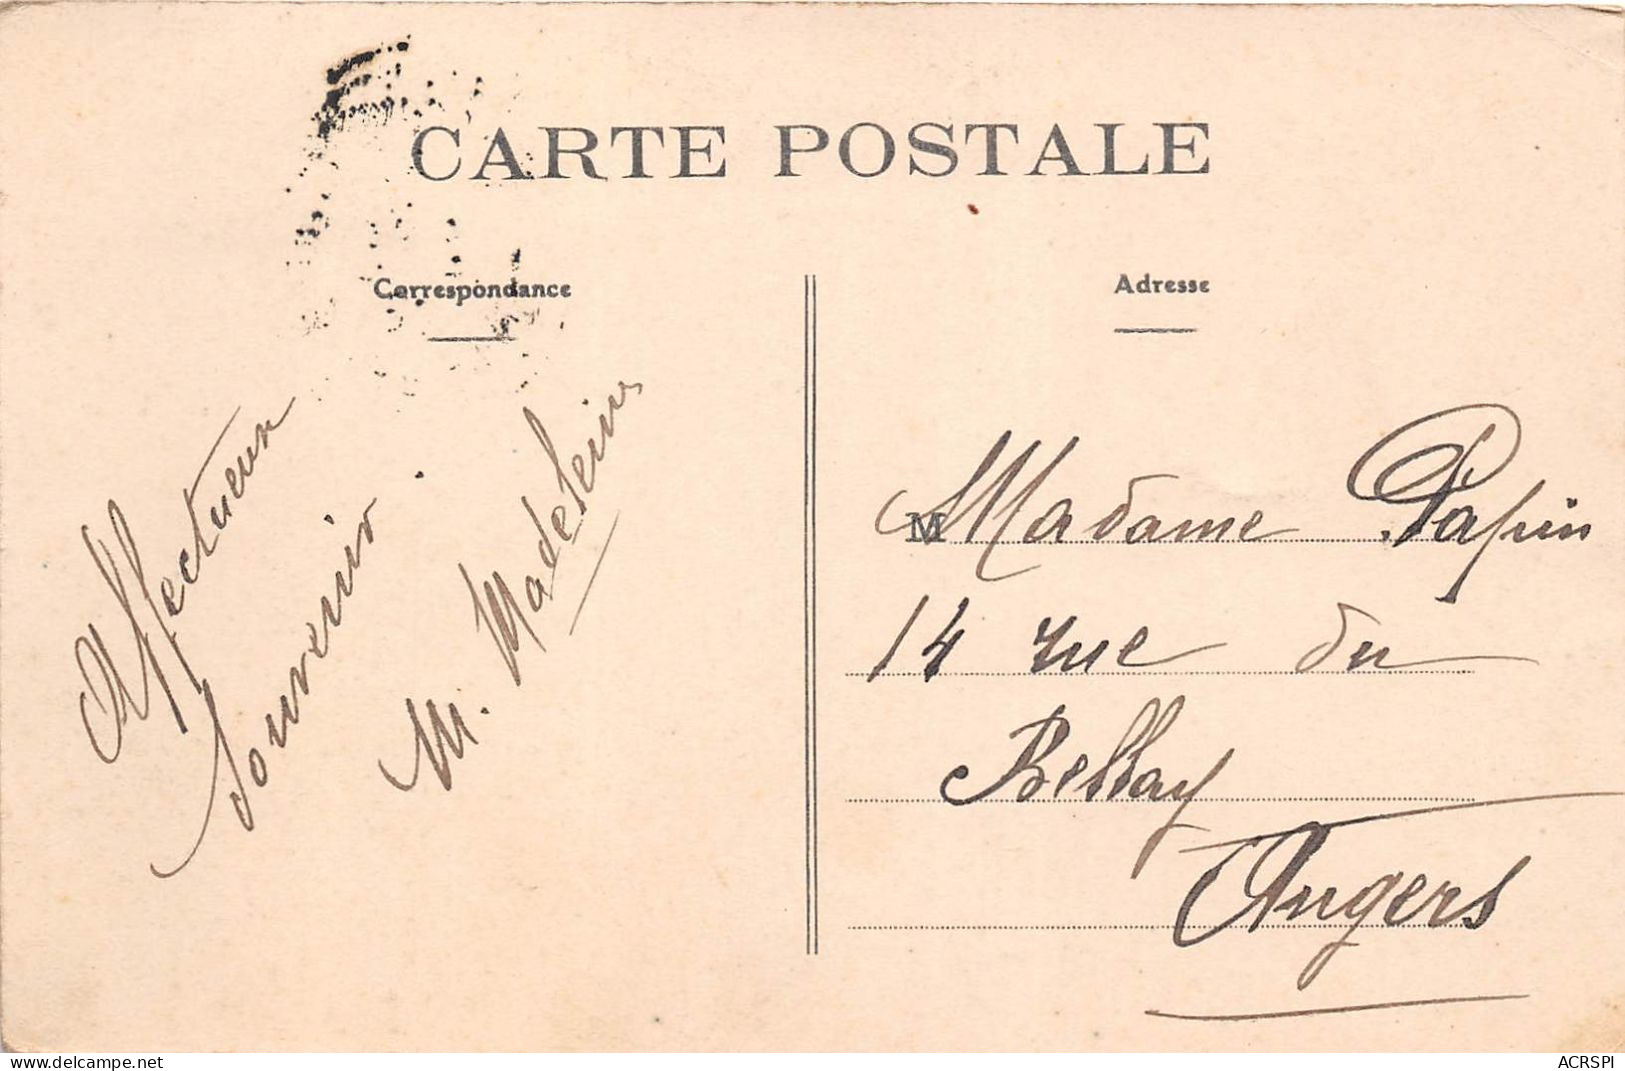 CARTE POSTALE
Correspondance
Affectueux
souvenir
M. Madeleine
Adresse
M Madame Papin
14 rue du
Bellay
Angers
delcampe.net
ACRSPI